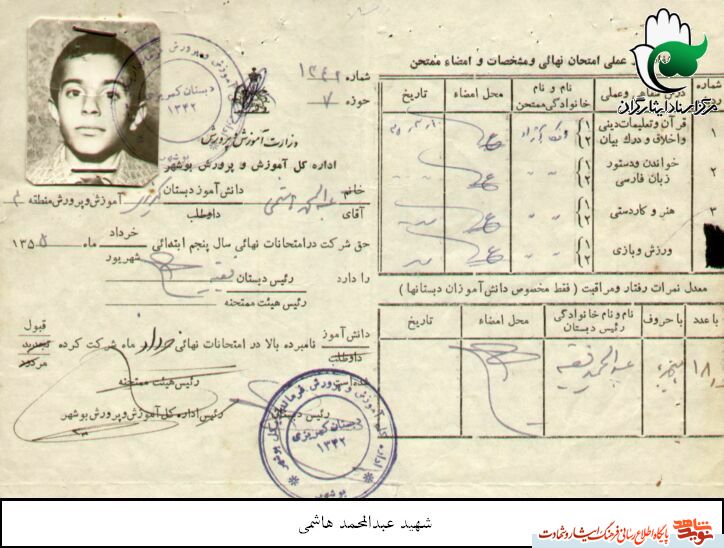 شماره ۱۳۴۶
حوزه ۷
وزارت آموزش و پرورش
اداره کل آموزش و پرورش بوشهر
خانم
آقای
عبدالمحمد هاشمی
دانش آموز دبستان
داوطلب
آموزش و پرورش منطقه
حق شرکت در امتحانات نهائی سال پنجم ابتدائی
خرداد
شهریور
ماه ۱۳۵۵
را دارد
رئیس دبستان فقیه
رئیس هیئت ممتحنه
دانش آموز
داوطلب
نامبرده بالا در امتحانات نهائی خرداد ماه شرکت کرده
قبول
تجدید
مردود
شده است
رئیس هیئت ممتحنه
رئیس دبستان
رئیس اداره کل آموزش و پرورش بوشهر
دبستان کهریزی
۱۳۴۲
بوشهر
دبستان کهریزی
۱۳۴۲
بوشهر
مرکز اسناد ایثارگران
عملی امتحان نهائی و مشخصات و امضاء ممتحن
شماره
درس شفاهی و عملی
نام و نام خانوادگی ممتحن
محل امضاء
تاریخ
۱
قرآن و تعلیمات دینی
و اخلاق و درک بیان
۱
۲
۲
خواندن و دستور
زبان فارسی
۱
۲
۳
هنر و کاردستی
۱
۲
ورزش و بازی
۱
۲
معدل نمرات رفتار و مراقبت ( فقط مخصوص دانش آموزان دبستانها )
با عدد
با حروف
نام و نام خانوادگی
رئیس دبستان
محل امضاء
تاریخ
۱۸
عبدالمحمد فقیه
شهید عبدالمحمد هاشمی
نوید شاهد
پایگاه اطلاع رسانی فرهنگ ایثار و شهادت